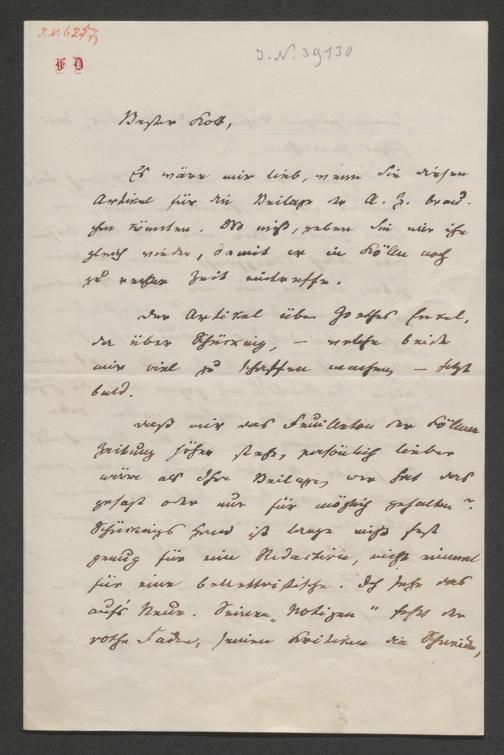 J. N. 6257
J. N. 39130
F D
Bester Kolb,
Es wäre mir lieb, wenn Sie diesen
Artikel für die Beilage der A. Z. brau-
chen könnten. Wo nicht, geben Sie mir ihn
gleich wieder, damit er in Kölln noch
zu rechter Zeit eintreffe.
Der Artikel über Goethes Enkel,
der über Schücking, — welche beide
mir viel zu schaffen machen, — folgt
bald.
Daß mir das Feuilleton der Köllner
Zeitung höher steht, persönlich lieber
wäre als Ihre Beilage, wer hat das
gesagt oder nur für möglich gehalten?
Schückings Hand ist lange nicht fest
genug für eine Redaction, nicht einmal
für eine belletristische. Ich sehe das
aufs Neue. Seinen „Notizen" fehlt der
rothe Faden, seinen Kritiken die Schneide,